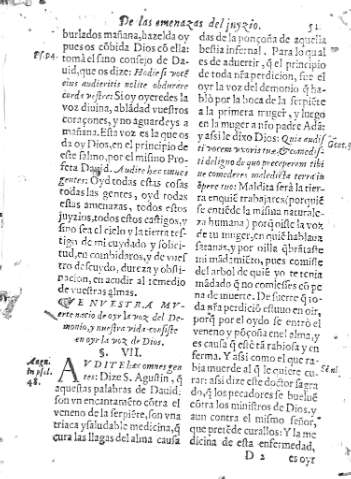 De las amenazas del juyzio. 51
burlados mañana, hazelda oy
pues os cōbida Dios cō ella:
tomā el sano consejo de Da-
uid, que os dize: Hodie si vocē
eius audieritis nolite obdurare
corda vestra: Si oy oyeredes la
voz diuina, ablādad vuestros
coraçones, y no aguardeys a
mañana. Esta voz es la que os
da oy Dios, en el principio de
este salmo, por el mismo Pro-
feta Dauid. Audite hæc omnes
gentes: Oyd todas estas cosas
todas las gentes, oyd todas
estas amenazas, todos estos
juyzios, todos estos castigos, y
sino sea el cielo y la tierra tes-
tigo de mi cuydado y solici-
tud, en combidaros, y de vues-
tro descuydo, dureza y obsti-
nacion, en acudir al remedio
de vuestras almas.
QVE NVESTRA MV-
erte nacio de oyr la voz del De-
monio, y nuestra vida consiste
en oyr la voz de Dios.
§. VII.
AVDITE hæc omnes gen
tes: Dize S. Agustin, q̄
aquestas palabras de Dauid,
son vn encantamēto cōtra el
veneno de la serpiēte, son vna
triaca y saludable medicina, q̄
cura las llagas del alma causa
Psp4.
Augu.
in psal.
48.
das de la ponçoña de aquella
bestia infernal. Para lo qual
es de aduertir, q̄ el principio
de toda nr̄a perdicion, fue el
oyr la voz del demonio q̄ ha-
blò por la boca de la serpiēte
a la primera muger, y luego
en la muger a nr̄o padre Adā,
y assi le dixo Dios: Quia audi-
sti vocem vxoris tuæ & comedi-
sti de ligno de quo preceperam tibi
ne comederes maledicta terra in
opere tuo: Maldita serà la tier-
ra en quiē trabajares (porquē
se entiēde la misma naturale-
za humana) porq̄ oiste la voz
de tu muger, en quiē hablaua
satanas, y por oilla q̄brātaste
mi mādamiēto, pues comiste
del arbol de quiē yo te tenia
mādado q̄ no comiesses cō pe
na de muerte. De suerte q̄ to-
da nr̄a perdiciō estuuo en oir,
porq̄ por el oydo se entrò el
veneno y pōçoña en el alma, y
es causa q̄ estè tā rabiosa y en
ferma. Y assi como el que ra-
bia muerde al q̄ le quiere cu-
rar: assi dize este doctor sagra
do, q̄ los pecadores se buelue
cōtra los ministros de Dios, y
aun contra el mismo señor,
que pretēde curallos: Y la me
dicina de esta enfermedad,
D 2 es oyr